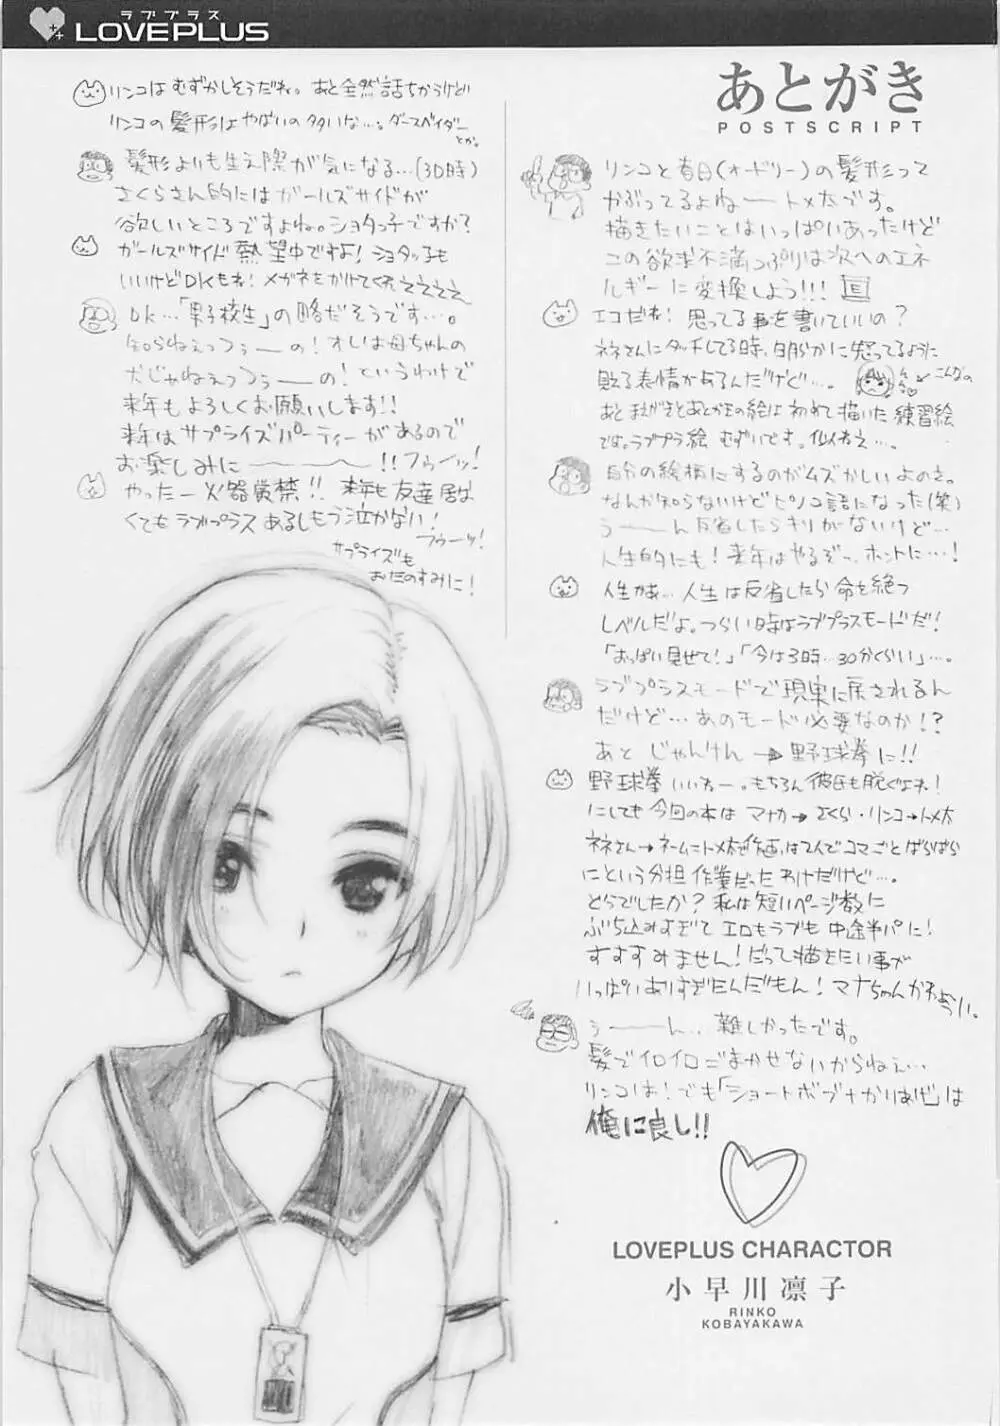 ラブプラス
LOVEPLUS
あとがき
POSTSCRIPT
リンコと春日(オードリー)の髪形って
かぶってるよねートメ太です。
描きたいことはいっぱいあったけど
この欲求不満っぷりは次へのエネ
ルギーに変換しよう!!!
エコだね! 思ってる事を書いていいの?
ネネさんにタッチしてる時、明らかに怒ってるように
見える表情があるんだけど…。
こんなの
あとまえがきとあとがきの絵は初めて描いた練習絵
です。ラブプラ絵 むずいです。似ねえ…。
自分の絵柄にするのがムズかしいよのさ。
なんか知らないけどピノコ語になった(笑)
うーーん反省したらキリがないけど…
人生的にも!来年はやるぞー、ホントに…!
人生かぁ…人生は反省したら命を絶つ
レベルだよ。つらい時はラブプラスモードだ!
「おっぱい見せて!」「今は3時…30分くらい」…。
ラブプラスモードで現実に戻されるん
だけど…あのモード必要なのか!?
あと じゃんけん→野球拳に!!
野球拳いいねー。もちろん彼氏も脱ぐよね!
にしても今回の本は マナカ→さくら・リンコ→トメ太
ネネさん→ネームニトメ太作画は2人でコマごとばらばら
にという分担作業だったわけだけど…。
どうでしたか? 私は短いページ数に
ぶち込みすぎて エロもラブも 中途半パに!
すすすみません!だって描きたい事が
いっぱいありすぎたんだもん!マナちゃんかわようい。
うーーん…難しかったです。
髪でイロイロごまかせないからねぇ…
リンコは!でも「ショートボブ+かりあげ」は
俺に良し!!
リンコはむずかしそうだね。あと全然話ちがうけど
リンコの髪形はやばいの多いな…。ダースベイダー
とか。
髪形よりも生え際が気になる…(3D時)
さくらさん的にはガールズサイドが
欲しいところですよね。ショタっ子ですか?
ガールズサイド熱望中ですよ! ショタっ子も
いいけどDKもね! メガネをかけてくれええええ
DK…「男子校生」の略だそうです…。
知らねえっつぅーの!オレは母ちゃんの
犬じゃねえっつぅーの!というわけで
来年もよろしくお願いします!!
来年はサプライズパーティーがあるので
お楽しみに〜〜〜!!フゥーッ!
やったー火器厳禁!! 来年も友達居な
くてもラブプラスあるしもう泣かない!
フゥーッ!
サプライズも
おたのすみに!
LOVEPLUS CHARACTOR
小早川凛子
RINKO
KOBAYAKAWA